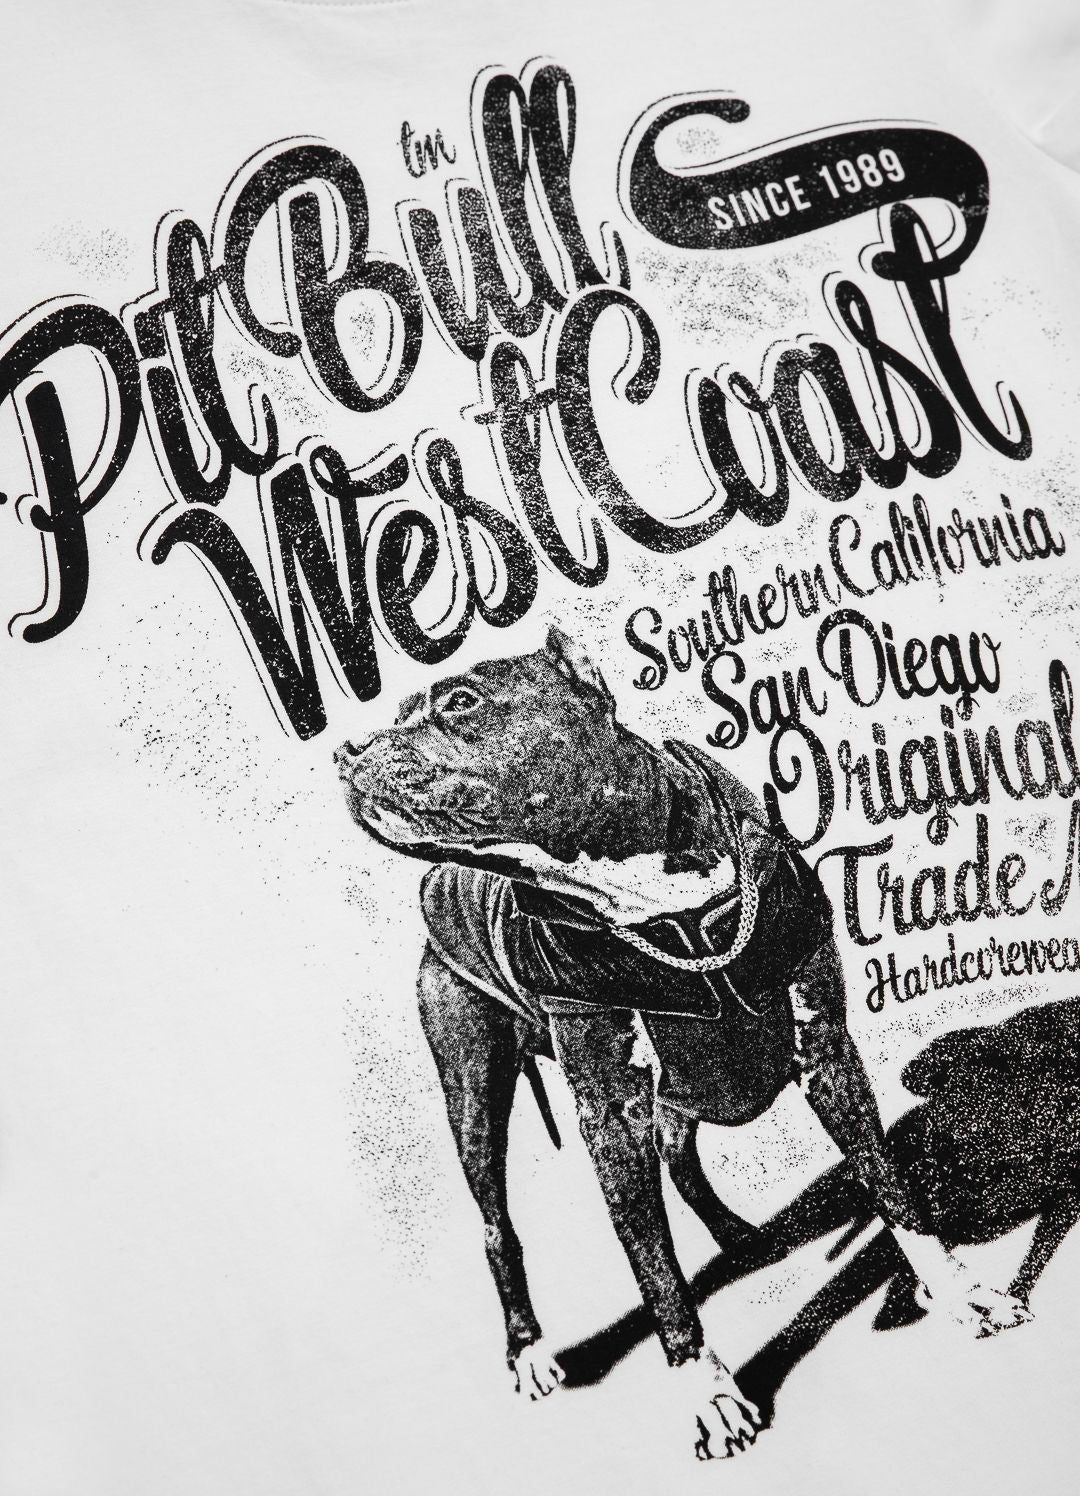 Pit Bull tm
SINCE 1989
West Coast
Southern California
San Diego
Original
Trade